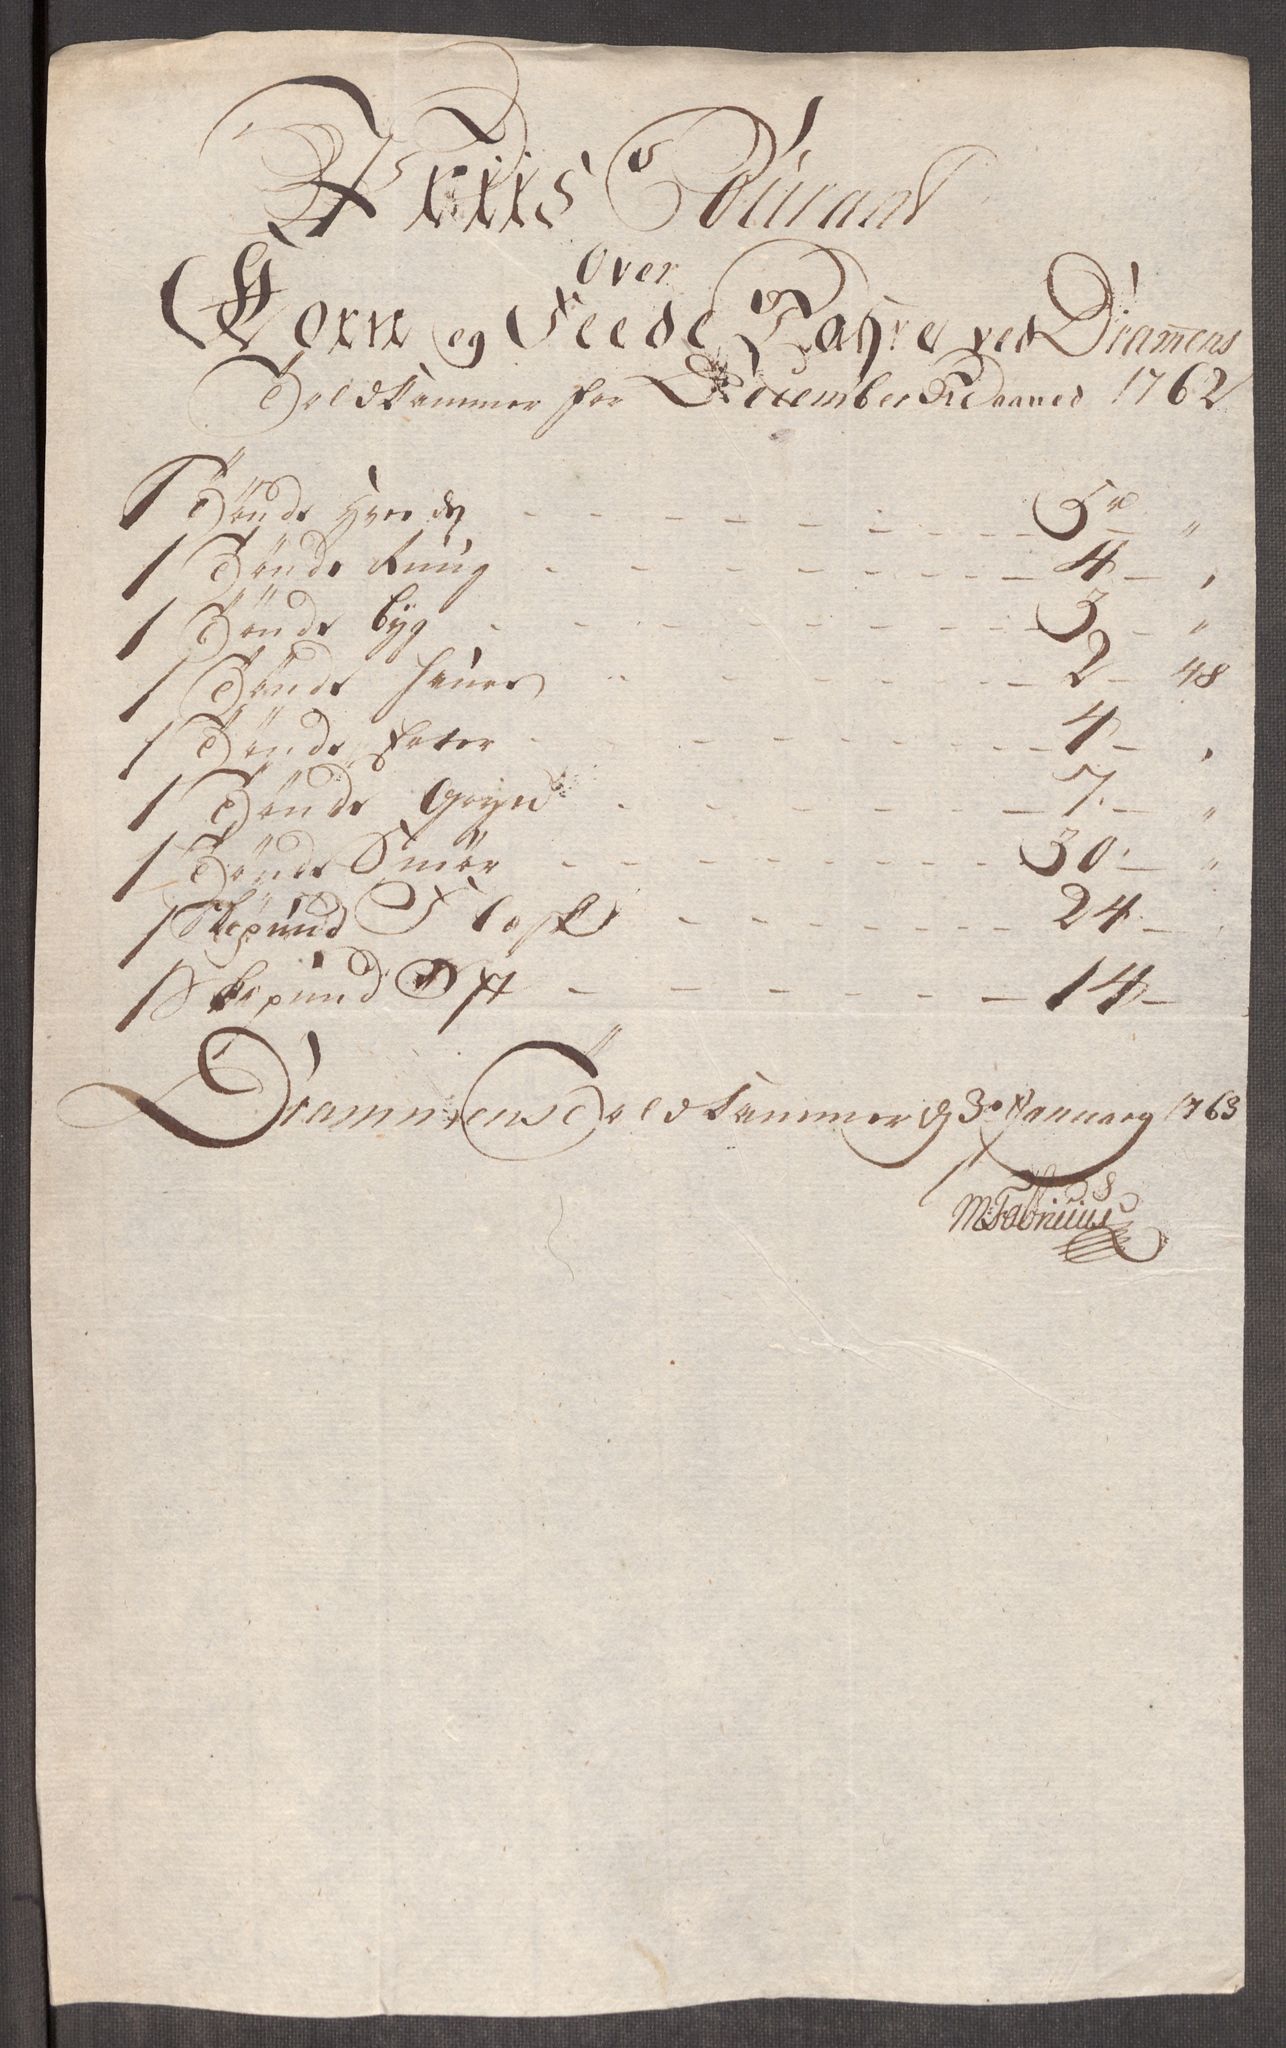 Priis Courant
Over
Korn og Feede Vahre ved Dramens
Toldkammer for December Maaned 1762
1 Tønde Hvede - - - 5 rd "
1 Tønde Ruug - - - 4 - "
1 Tønde byg - - - 3 - "
1 Tønde haure - - - 2 - 48
1 Tønde Erter - - - 4 - "
1 Tønde Gryn - - - 7. - "
1 Tønde Smør - - - 30. - "
1 Skpund Flesk - - - 24 -
1 Skpund Ost - - - 14 -
Drammens Toldkammer d 3 January 1763
M: Fabricius